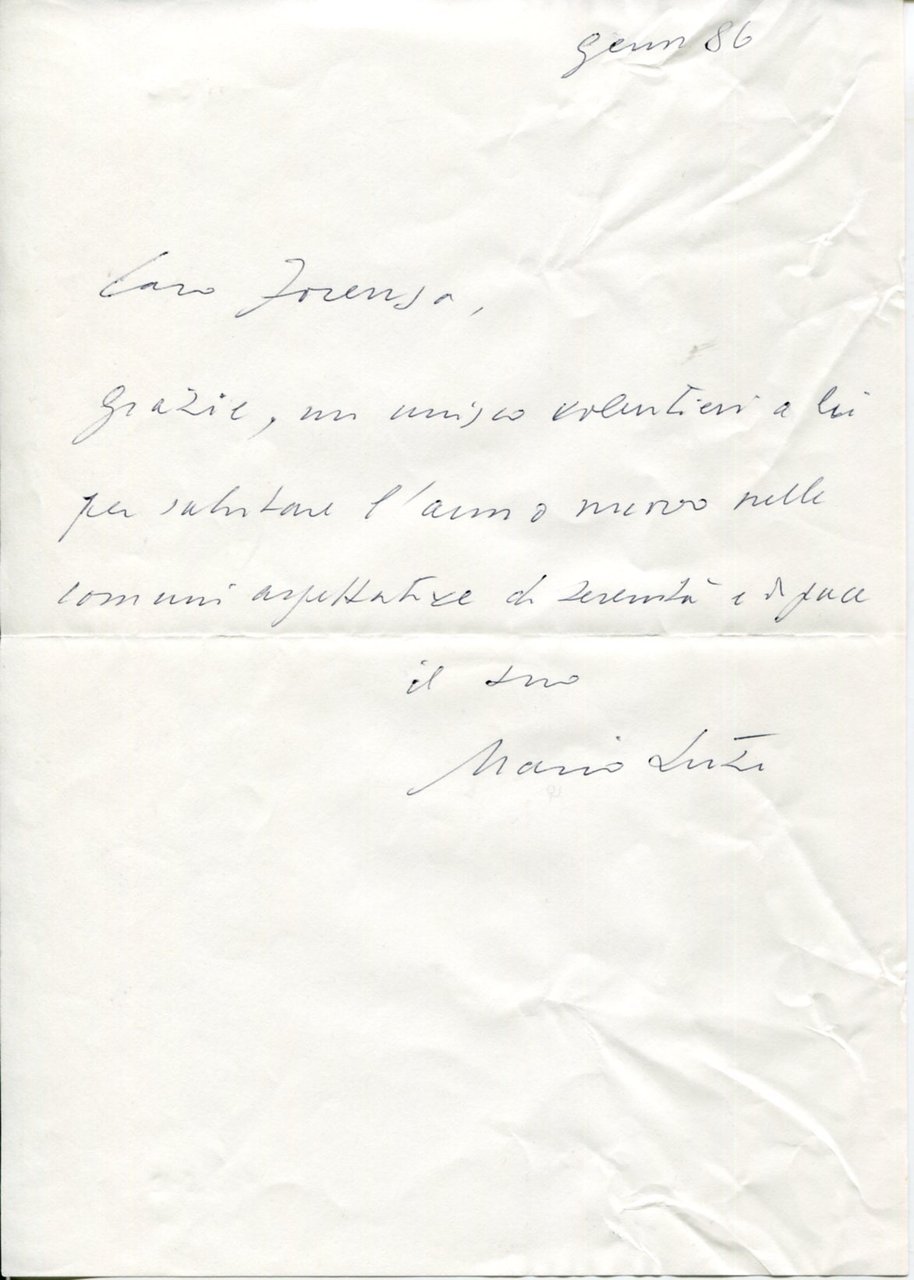 genn 86
Caro
grazie, mi unisco volentieri a lei
per salutare l'anno nuovo nelle
comuni aspettative di serenità e di pace
il suo
Mario Luzi